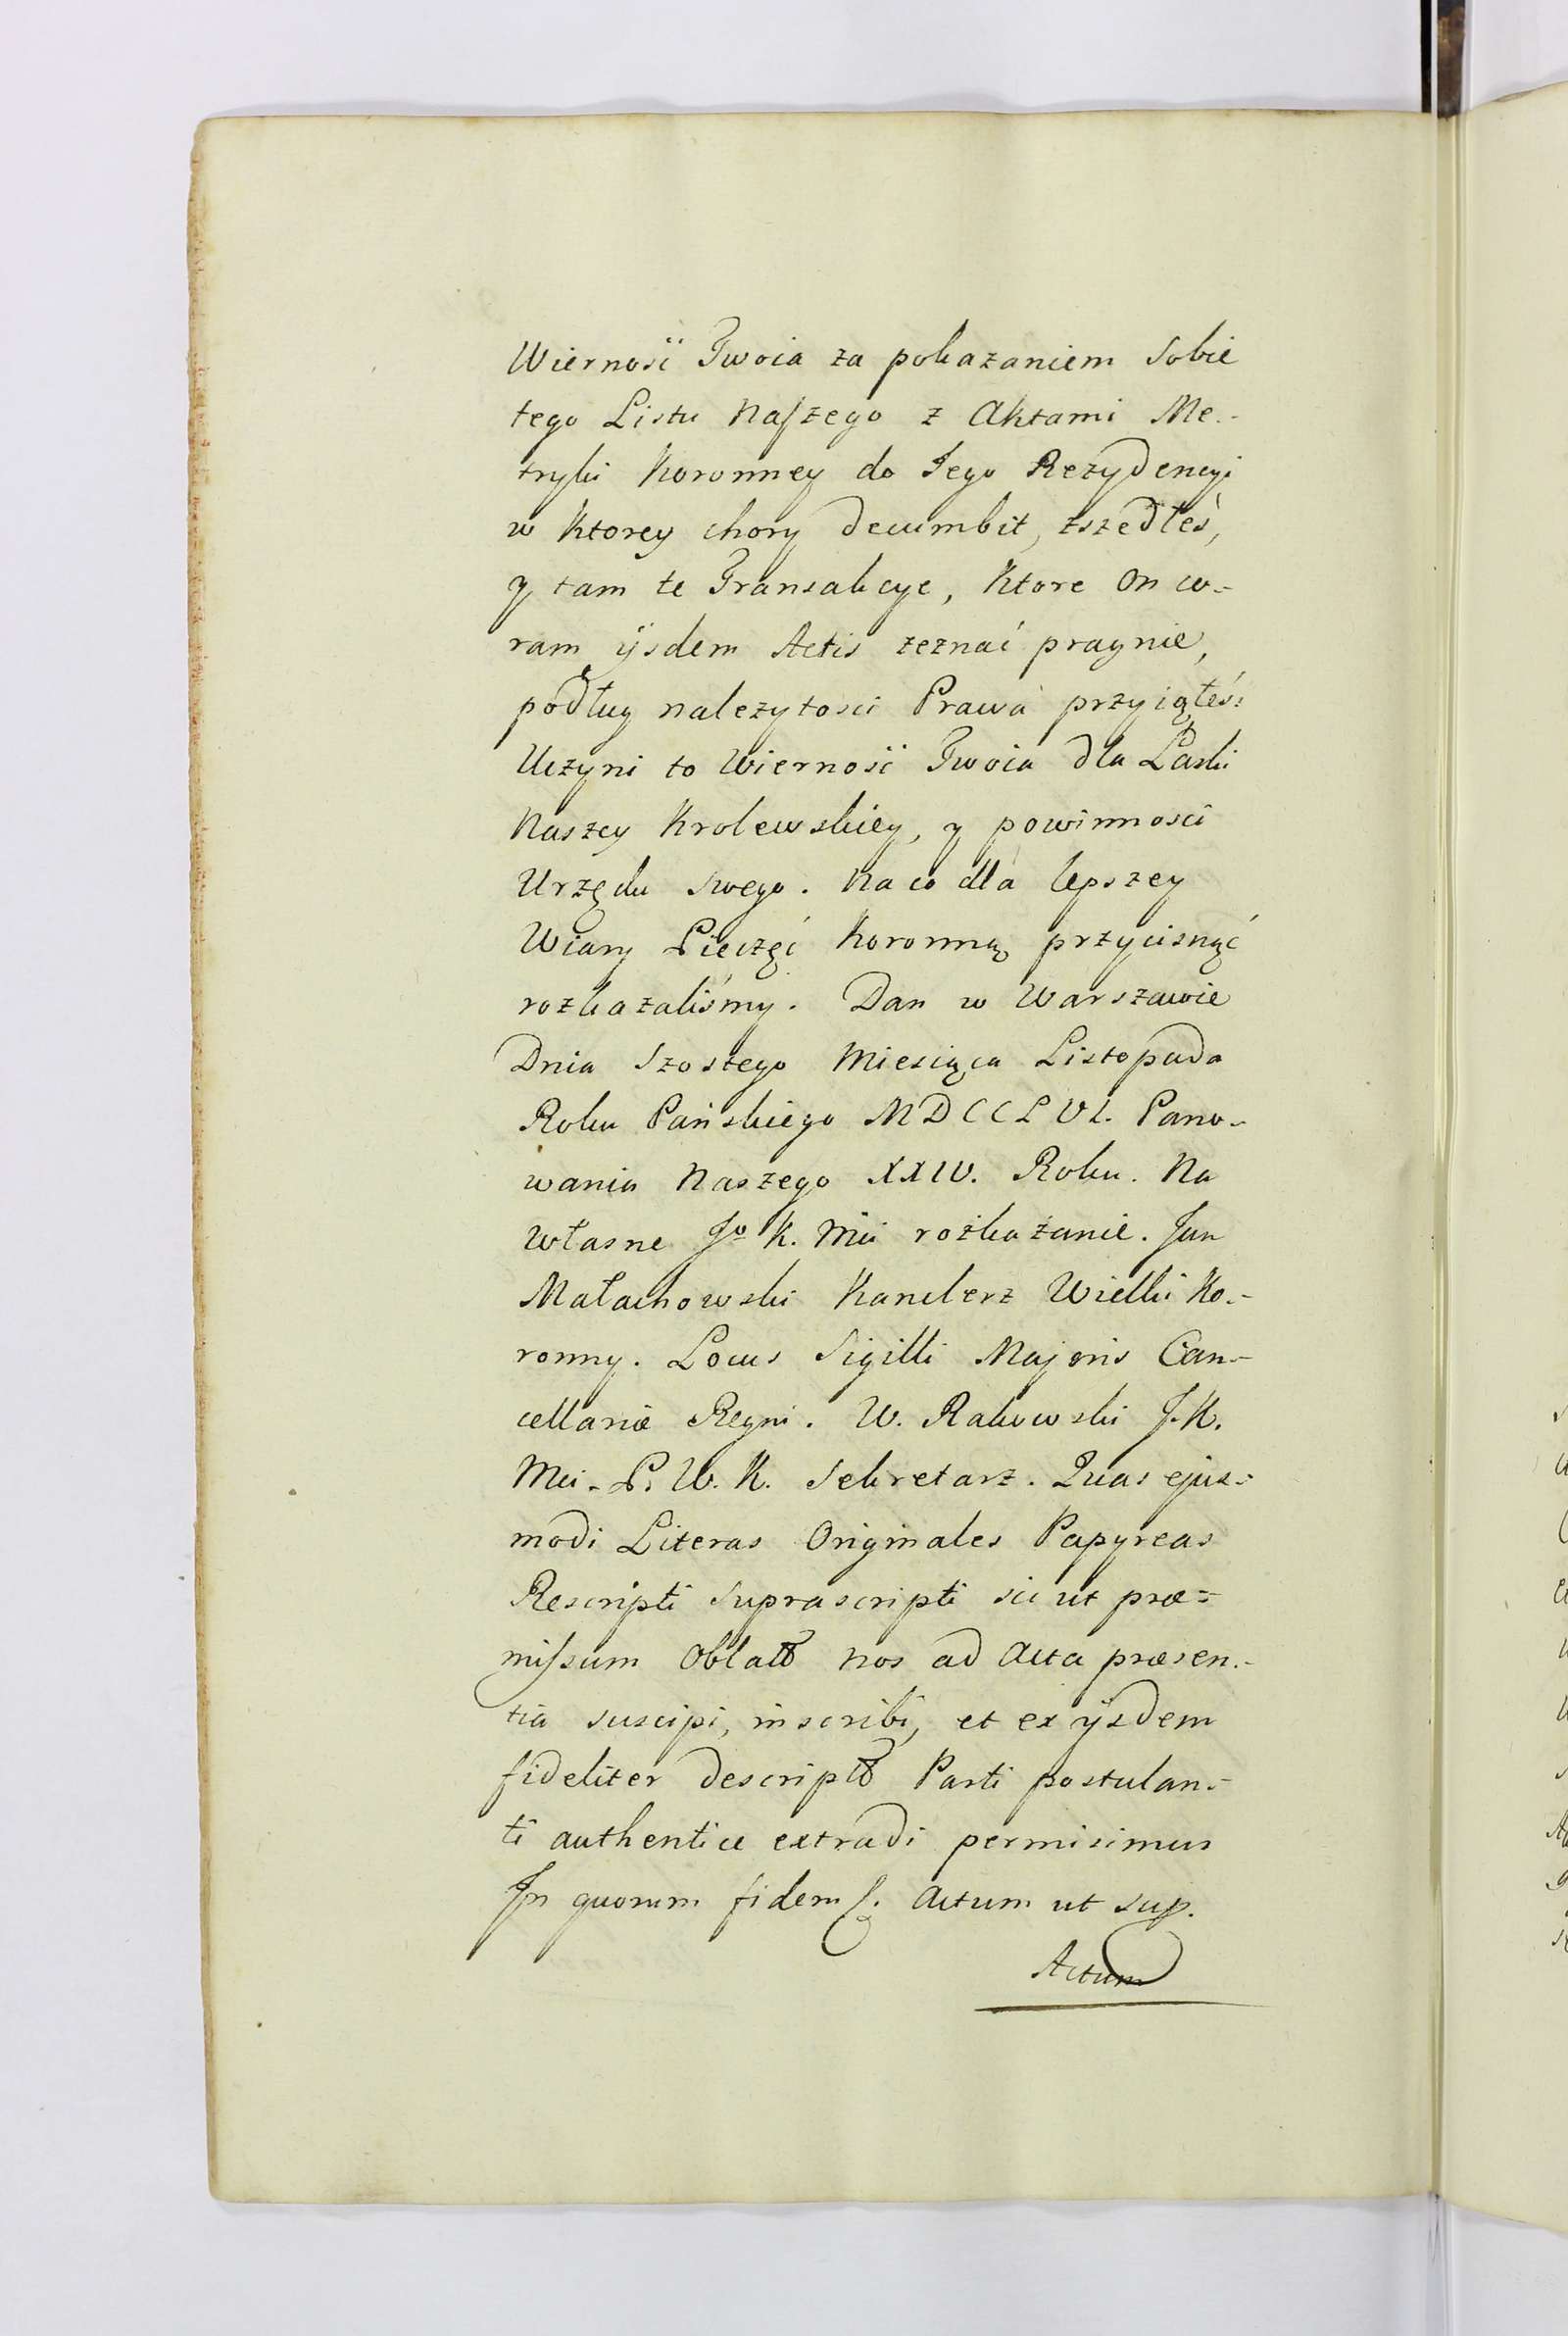 Wierność Twoia za pokazaniem Sobie
tego Listu Naszego z Aktami Me-
tryki Koronney do Jego Rezydencyi
w Ktorey chory decumbit, zszedłeś,
y tam te Transakcye, Ktore On co-
ram ijsdem Actis zeznać pragnie,
podług nalezytosci Prawa przyiąłeś:
Uczyni to Wierność Twoia dla Łaski
Naszey Krolewskiey, y powinnosci
Urzędu Swego. Na co dla lepszey
Wiary Pieczęć Koronną przycisnąć
rozkazaliśmy. Dan w Warszawie
Dnia Szostego Miesiąca Listopada
Roku Pańskiego MDCCLVI. Pano-
wania Naszego XXIV. Roku. Na
własne Jo K. Mci rozkazanie. Jan
Małachowski Kanclerz Wielki Ko-
ronny. Locus Sigilli Majoris Can-
cellariæ Regni. W. Rakowski J.K.
Mci. P. W. K. Sekretarz. Quas ejus=
modi Literas Originales Papyreas
Rescripti Suprascripti sic ut præ=
missum Oblat nos ad Acta præsen-
tia suscipi, inscribi, et ex ijsdem
fideliter descript Parti postulan=
ti authentice extradi permisimus
In quorum fidem Actum ut sup.
Actum